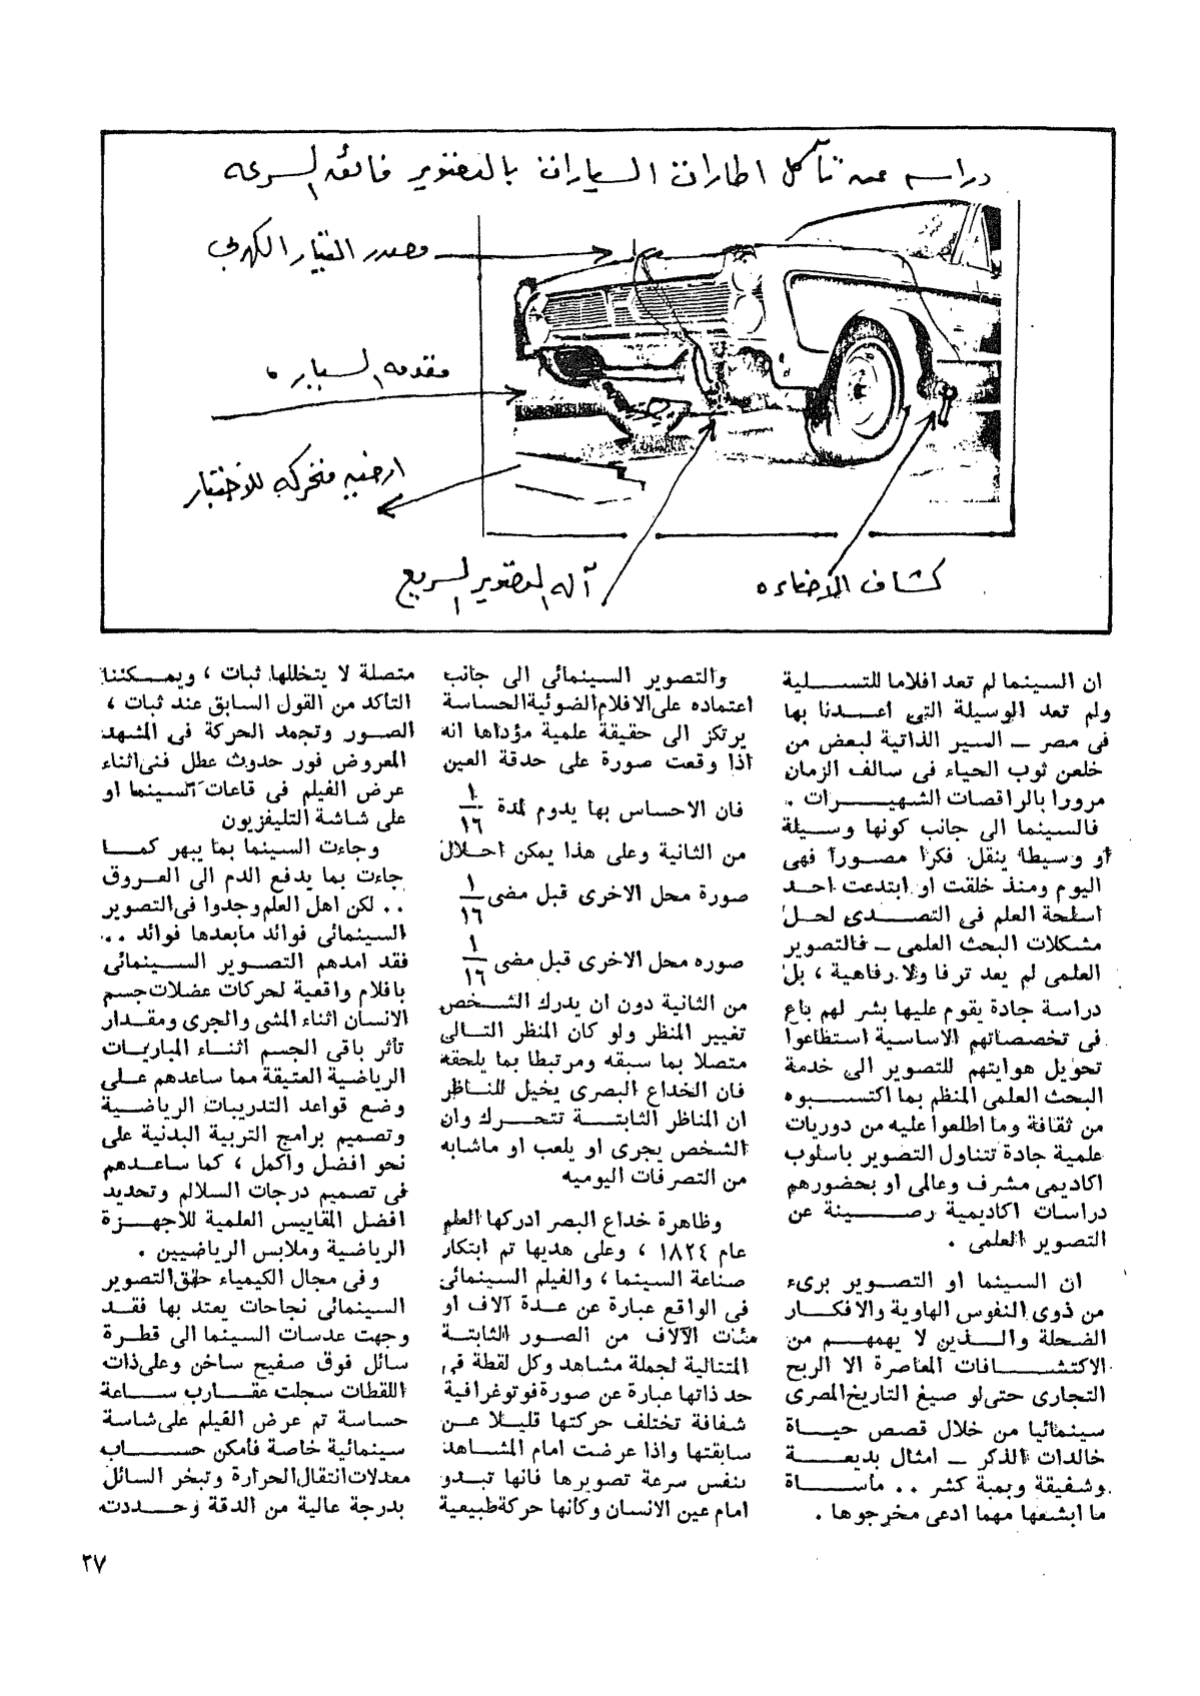 دراسه عن تآكل اطارات السيارات بالتصوير فائقه السرعه
مصدر التيار الكهربى
مقدمه السياره
ارضيه متحركه للاختبار
آله التصوير السريع
كشاف الاضاءه
ان السينما لم تعد افلاما للتسلية
ولم تعد الوسيلة التى اعتدنا بها
فى مصر — السير الذاتية لبعض من
خلعن ثوب الحياء فى سالف الزمان
مرورا بالراقصات الشهيرات .
فالسينما الى جانب كونها وسيلة
او وسيطا ينقل فكرا مصورا فهى
اليوم ومنذ خلقت او ابتدعت احد
اسلحة العلم فى التصدى لحل
مشكلات البحث العلمى — فالتصوير
العلمى لم يعد ترفا ولا رفاهية ، بل
دراسة جادة يقوم عليها بشر لهم باع
فى تخصصاتهم الاساسية استطاعوا
تحويل هوايتهم للتصوير الى خدمة
البحث العلمى المنظم بما اكتسبوه
من ثقافة وما اطلعوا عليه من دوريات
علمية جادة تتناول التصوير باسلوب
اكاديمى مشرف وعالى او بحضورهم
دراسات اكاديمية رصينة عن
التصوير العلمى .
ان السينما او التصوير برىء
من ذوى النفوس الهاوية والافكار
الضحلة والذين لا يهمهم من
الاكتشافات المعاصرة الا الربح
التجارى حتى لو صيغ التاريخ المصرى
سينمائيا من خلال قصص حياة
خالدات الذكر — امثال بديعة
وشفيقة وبمبة كشر .. مأساة
ما ابشعها مهما ادعى مخرجوها .
والتصوير السينمائى الى جانب
اعتماده على الافلام الضوئية الحساسة
يرتكز الى حقيقة علمية مؤداها انه
اذا وقعت صورة على حدقة العين
فان الاحساس بها يدوم لمدة ١/١٦
من الثانية وعلى هذا يمكن احلال
صورة محل الاخرى قبل مضى ١/١٦
صوره محل الاخرى قبل مضى ١/١٦
من الثانية دون ان يدرك الشخص
تغيير المنظر ولو كان المنظر التالى
متصلا بما سبقه ومرتبطا بما يلحقه
فان الخداع البصرى يخيل للناظر
ان المناظر الثابتة تتحرك وان
الشخص يجرى او يلعب او ماشابه
من التصرفات اليوميه
وظاهرة خداع البصر ادركها العلم
عام ١٨٢٤ ، وعلى هديها تم ابتكار
صناعة السينما ، والفيلم السينمائى
فى الواقع عبارة عن عدة آلاف او
مئات الآلاف من الصور الثابتة
المتتالية لجملة مشاهد وكل لقطة فى
حد ذاتها عبارة عن صورة فوتوغرافية
شفافة تختلف حركتها قليلا عن
سابقتها واذا عرضت امام المشاهد
بنفس سرعة تصويرها فانها تبدو
امام عين الانسان وكانها حركة طبيعية
متصلة لا يتخللها ثبات ، ويمكننا
التاكد من القول السابق عند ثبات ،
الصور وتجمد الحركة فى المشهد
المعروض فور حدوث عطل فنى اثناء
عرض الفيلم فى قاعات السينما او
على شاشة التليفزيون
وجاءت السينما بما يبهر كما
جاءت بما يدفع الدم الى العروق
.. لكن اهل العلم وجدوا فى التصوير
السينمائى فوائد مابعدها فوائد ..
فقد امدهم التصوير السينمائى
بافلام واقعية لحركات عضلات جسم
الانسان اثناء المشى والجرى ومقدار
تأثر باقى الجسم اثناء المباريات
الرياضية العتيقة مما ساعدهم على
وضع قواعد التدريبات الرياضية
وتصميم برامج التربية البدنية على
نحو افضل واكمل ، كما ساعدهم
فى تصميم درجات السلالم وتحديد
افضل المقاييس العلمية للاجهزة
الرياضية وملابس الرياضيين .
وفى مجال الكيمياء حقق التصوير
السينمائى نجاحات يعتد بها فقد
وجهت عدسات السينما الى قطرة
سائل فوق صفيح ساخن وعلى ذات
اللقطات سجلت عقارب ساعة
حساسة تم عرض الفيلم على شاسة
سينمائية خاصة فأمكن حساب
معدلات انتقال الحرارة وتبخر السائل
بدرجة عالية من الدقة وحددت
٢٧